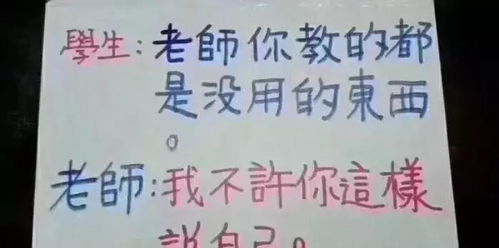 學生:老師你教的都
是没用的東西
。
老師:我不許你這樣
說自己。